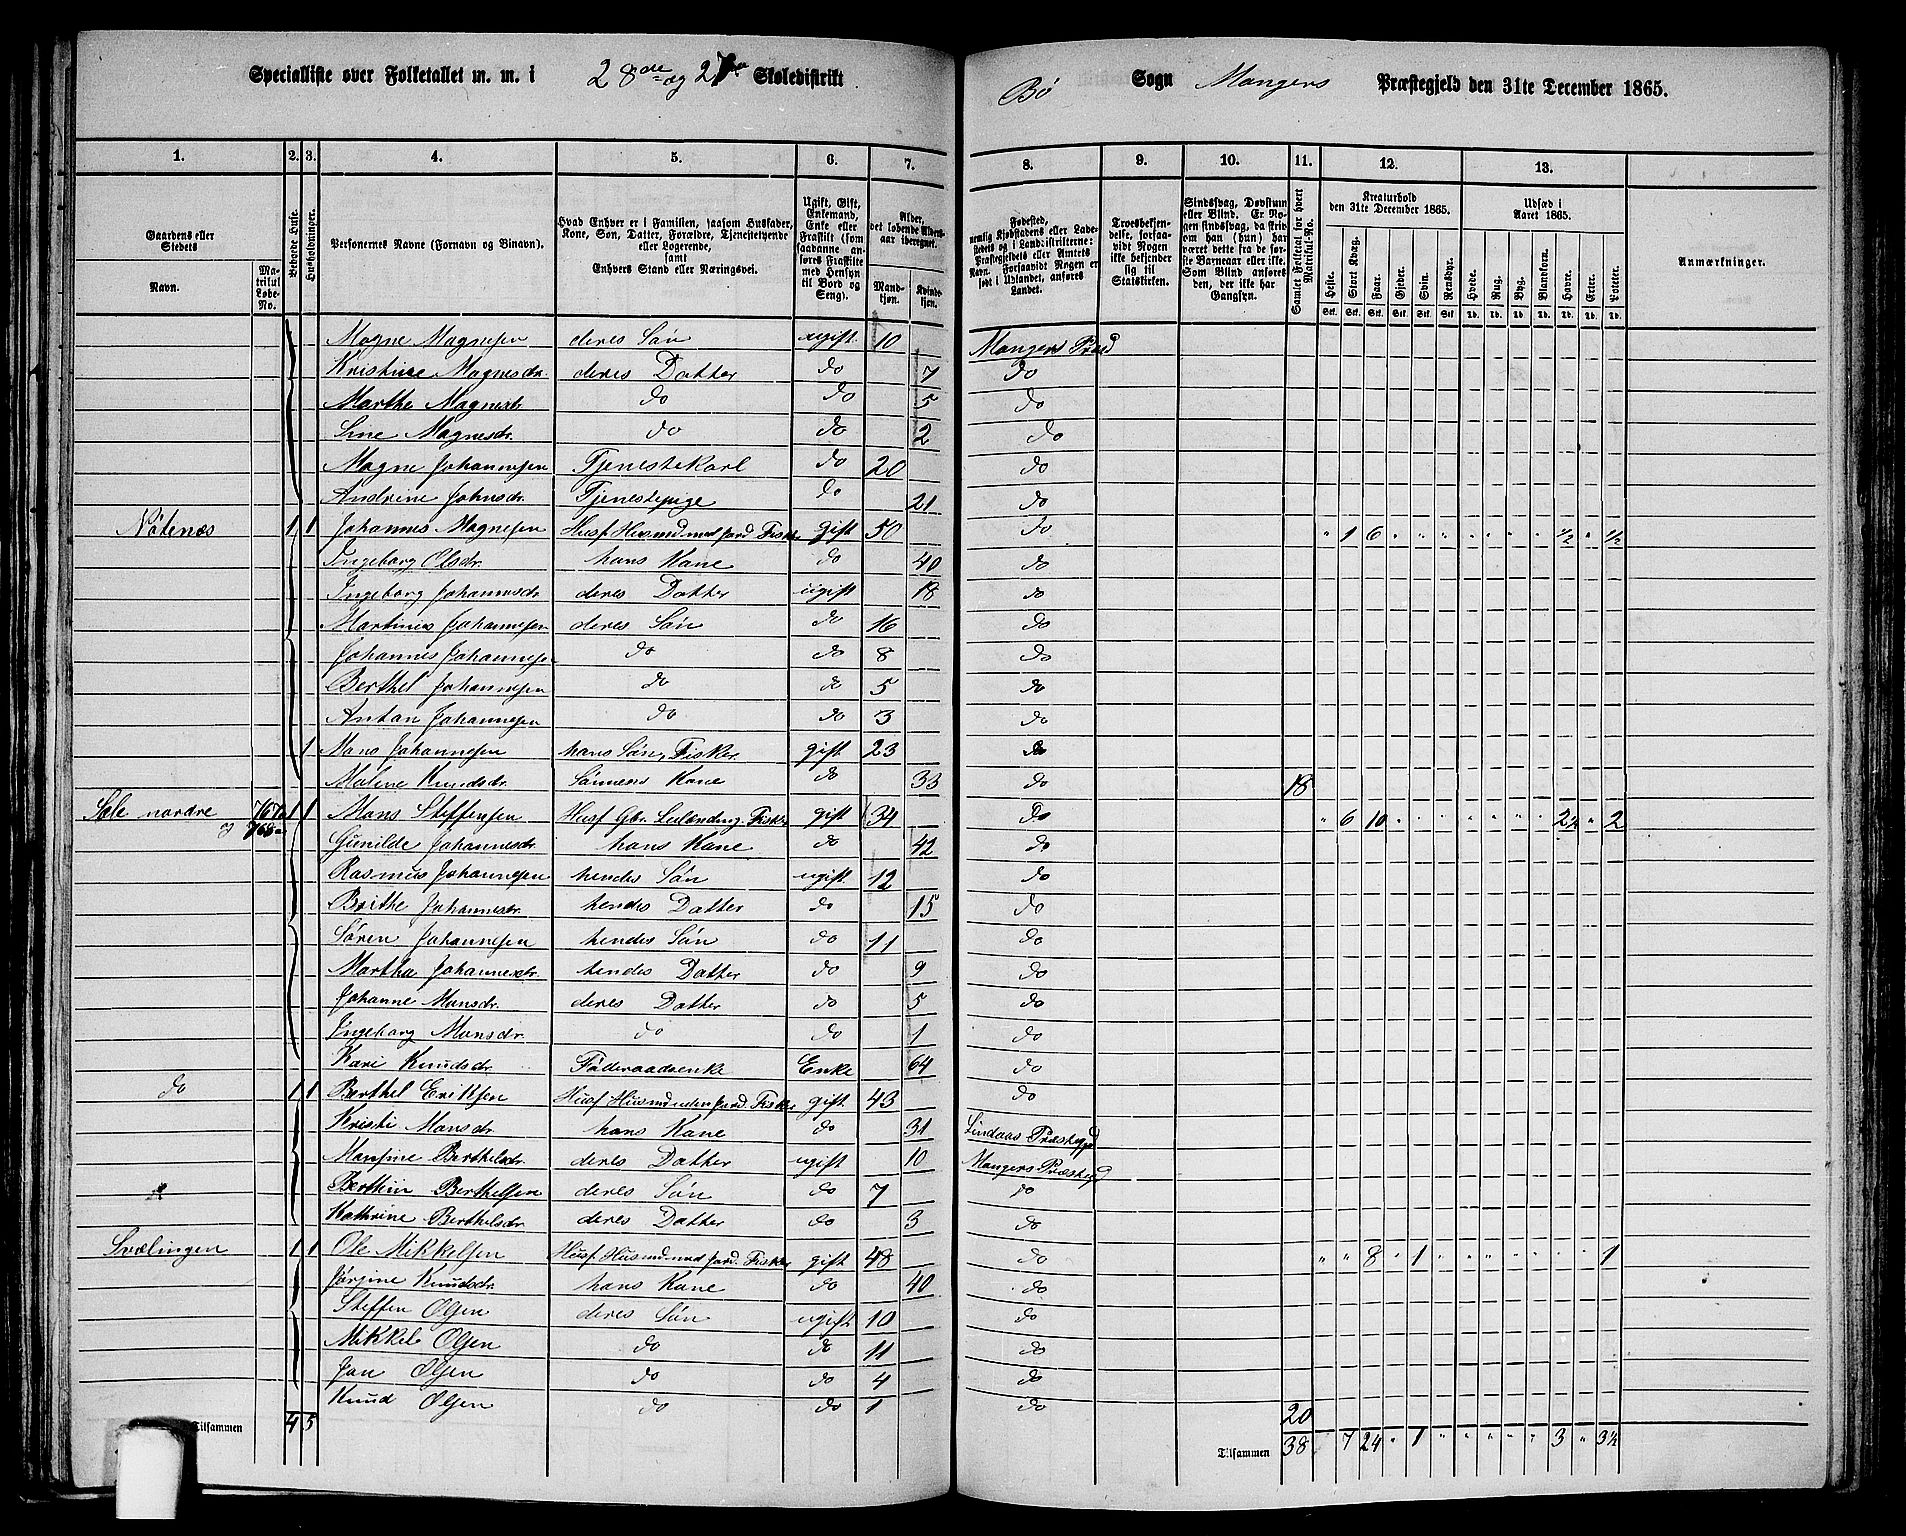 Specialliste over Folketallet m. m. i 28de og 27de Skoledistrikt
Bö Sogn Mangers Præstegjeld den 31te December 1865.
1. 2. 3. 4. 5. 6. 7. 8. 9. 10. 11. 12. 13.
Gaardens eller Stedets
Navn.
Matrikul Løbe-No.
Beboede Huse.
Husholdninger.
Personernes Navne (Fornavn og Binavn).
Hvad Enhver er i Familien, saasom Husfader, Kone, Søn, Datter, Forældre, Tjenestetyende eller Logerende, samt Enhvers Stand eller Næringsvei.
Ugift, Gift, Enkemand, Enke eller Fraskilt (som saadanne anføres Fraskilte med Hensyn til Bord og Seng).
Alder, det løbende Aldersaar iberegnet.
Mandkjøn.
Kvindekjøn.
Fødested, nemlig Kjøbstadens eller Ladestedets og i Landdistrikterne: Præstegjeldets eller Amtets Navn. Forsaavidt Nogen er født i Udlandet, anføres Landet.
Troesbekjendelse, forsaavidt Nogen ikke bekjender sig til Statskirken.
Sindssvag, Døvstum eller Blind. Er Nogen sindssvag, da skrives om han (hun) har været dette fra de første Barneaar eller ikke. Som Blind anføres den, der ikke har Gangsyn.
Samlet Folketal for hvert Matrikul-No.
Kreaturhold den 31te December 1865.
Heste. Stort Kvæg. Faar. Gjeder. Sviin. Rensdyr.
Udsæd i Aaret 1865.
Hvede. Rug. Byg. Blandkorn. Havre. Erter. Poteter.
Anmærkninger.
Magne Magnesen deres Søn ugift 10 Mangers Præd
Kristine Magnesdr. deres Datter do 7 do
Marthe Magnesdr. do do 5 do
Sine Magnesdr. do do 2 do
Magne Johannesen Tjenestekarl do 20 do
Andrine Johnsdr. Tjenestepige do 21 do
Nötenæs 1 1 Johannes Magnesen Husf Husmd med Jord. Fisker gift 50 do " 1 6 " " " " " " " ½ " ½
Ingeborg Olsdr. hans Kone do 40 do
Ingeborg Johannesdr. deres Datter ugift 18 do
Martinus Johannesen deres Søn do 16 do
Johannes Johannesen do do 8 do
Berthel Johannesen do do 5 do
Anton Johannesen do do 3 do
1 Mons Johannesen hans Søn, Fisker gift 23 do
Malene Knudsdr. Sønnens Kone do 33 do 18
Sæle nordre 767a 1 1 Mons Steffensen Husf Gbr. Selvending. Fisker gift 34 do " 6 10 " " " " " " " 2½ " 2
og 768a Gunilde Johannesdr. hans Kone do 42 do
Rasmus Johannesen hendes Søn ugift 12 do
Brithe Johannesdr. hendes Datter do 15 do
Søren Johannesen hendes Søn do 11 do
Martha Johannesdr. hendes Datter do 9 do
Johanne Monsdr. deres Datter do 5 do
Ingeborg Monsdr. do do 1 do
Kari Knudsdr. Føderaadsenke Enke 64 do
do 1 1 Berthel Eriksen Husf Husmd uden Jord. Fisker gift 43 do
Kristi Monsdr. hans Kone do 31 Lindaas Præstegjd
Monsine Berthelsdr. deres Datter ugift 10 Mangers Præstegd
Berthin Berthelsen deres Søn do 7 do
Kathrine Berthelsdr. deres Datter do 3 do
Svælingen 1 1 Ole Mikkelsen Husf. Husmd med Jord. Fisker gift 48 do " " 8 " 1 " " " " " " " 1
Jørgine Knudsdr. hans Kone do 40 do
Steffen Olsen deres Søn ugift 10 do
Mikkel Olsen do do 11 do
Jon Olsen do do 4 do
Knud Olsen do do 1 do 20
Tilsammen 4 5 Tilsammen 38 7 24 " 1 " " " " " 3 " 3½